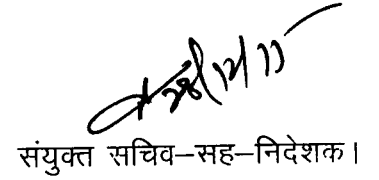 संयुक्त सचिव–सह–निदेशक।